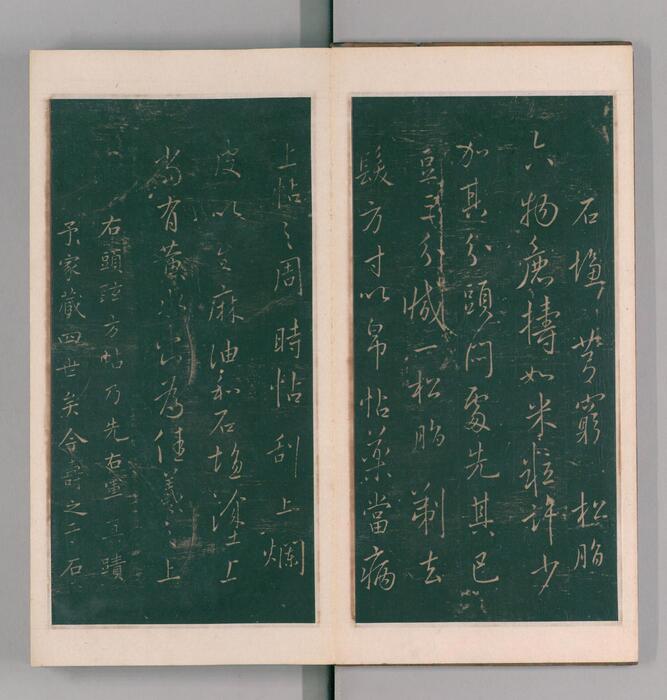 石塩 芎窮 松脂
六物麁擣如米粒許少
加其分頭悶處先其巴
豆三分減一松脂 剃去
髮方寸以帛帖藥當病
上帖之周時帖刮上爛
皮以麻油和石塩塗上
當有黃水出為佳羲之上
右頭眩方帖乃先右軍真蹟
予家藏四世矣今壽之于石